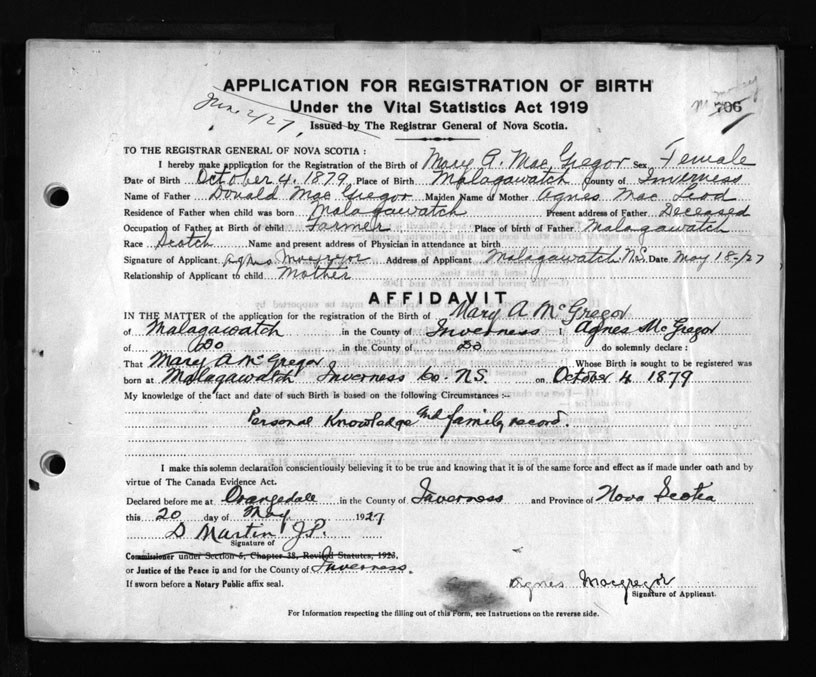 APPLICATION FOR REGISTRATION OF BIRTH
Under the Vital Statistics Act 1919
Issued by The Registrar General of Nova Scotia.
706
2/27
TO THE REGISTRAR GENERAL OF NOVA SCOTIA :
I hereby make application for the Registration of the Birth of Mary A. Mac Gregor Sex Female
Date of Birth October 4. 1879 Place of Birth Malagawatch County of Inverness
Name of Father Donald Mac Gregor Maiden Name of Mother Agnes Mac Leod
Residence of Father when child was born Malagawatch Present address of Father Deceased
Occupation of Father at Birth of child Farmer Place of birth of Father Malagawatch
Race Scotch Name and present address of Physician in attendance at birth
Signature of Applicant Agnes Macgregor Address of Applicant Malagawatch N.S. Date May 18-/27
Relationship of Applicant to child Mother
AFFIDAVIT
IN THE MATTER of the application of the registration of the Birth of Mary A McGregor
of Malagawatch in the County of Inverness I Agnes McGregor
of Do in the County of Do do solemnly declare :
That Mary A McGregor Whose Birth is sought to be registered was
born at Malagawatch Inverness Co. N.S. on October 4 1879
My knowledge of the fact and date of such Birth is based on the following Circumstances :-
Personal Knowledge and family record.
I make this solemn declaration conscientiously believing it to be true and knowing that it is of the same force and effect as if made under oath and by
virtue of The Canada Evidence Act.
Declared before me at Orangedale in the County of Inverness and Province of Nova Scotia
this 20 day of May 1927
D Martin J.P.
Signature of
Commissioner under Section 5, Chapter 38, Revised Statutes, 1923,
or Justice of the Peace in and for the County of Inverness.
If sworn before a Notary Public affix seal.
Agnes Macgregor
Signature of Applicant.
For Information respecting the filling out of this Form, see Instructions on the reverse side.